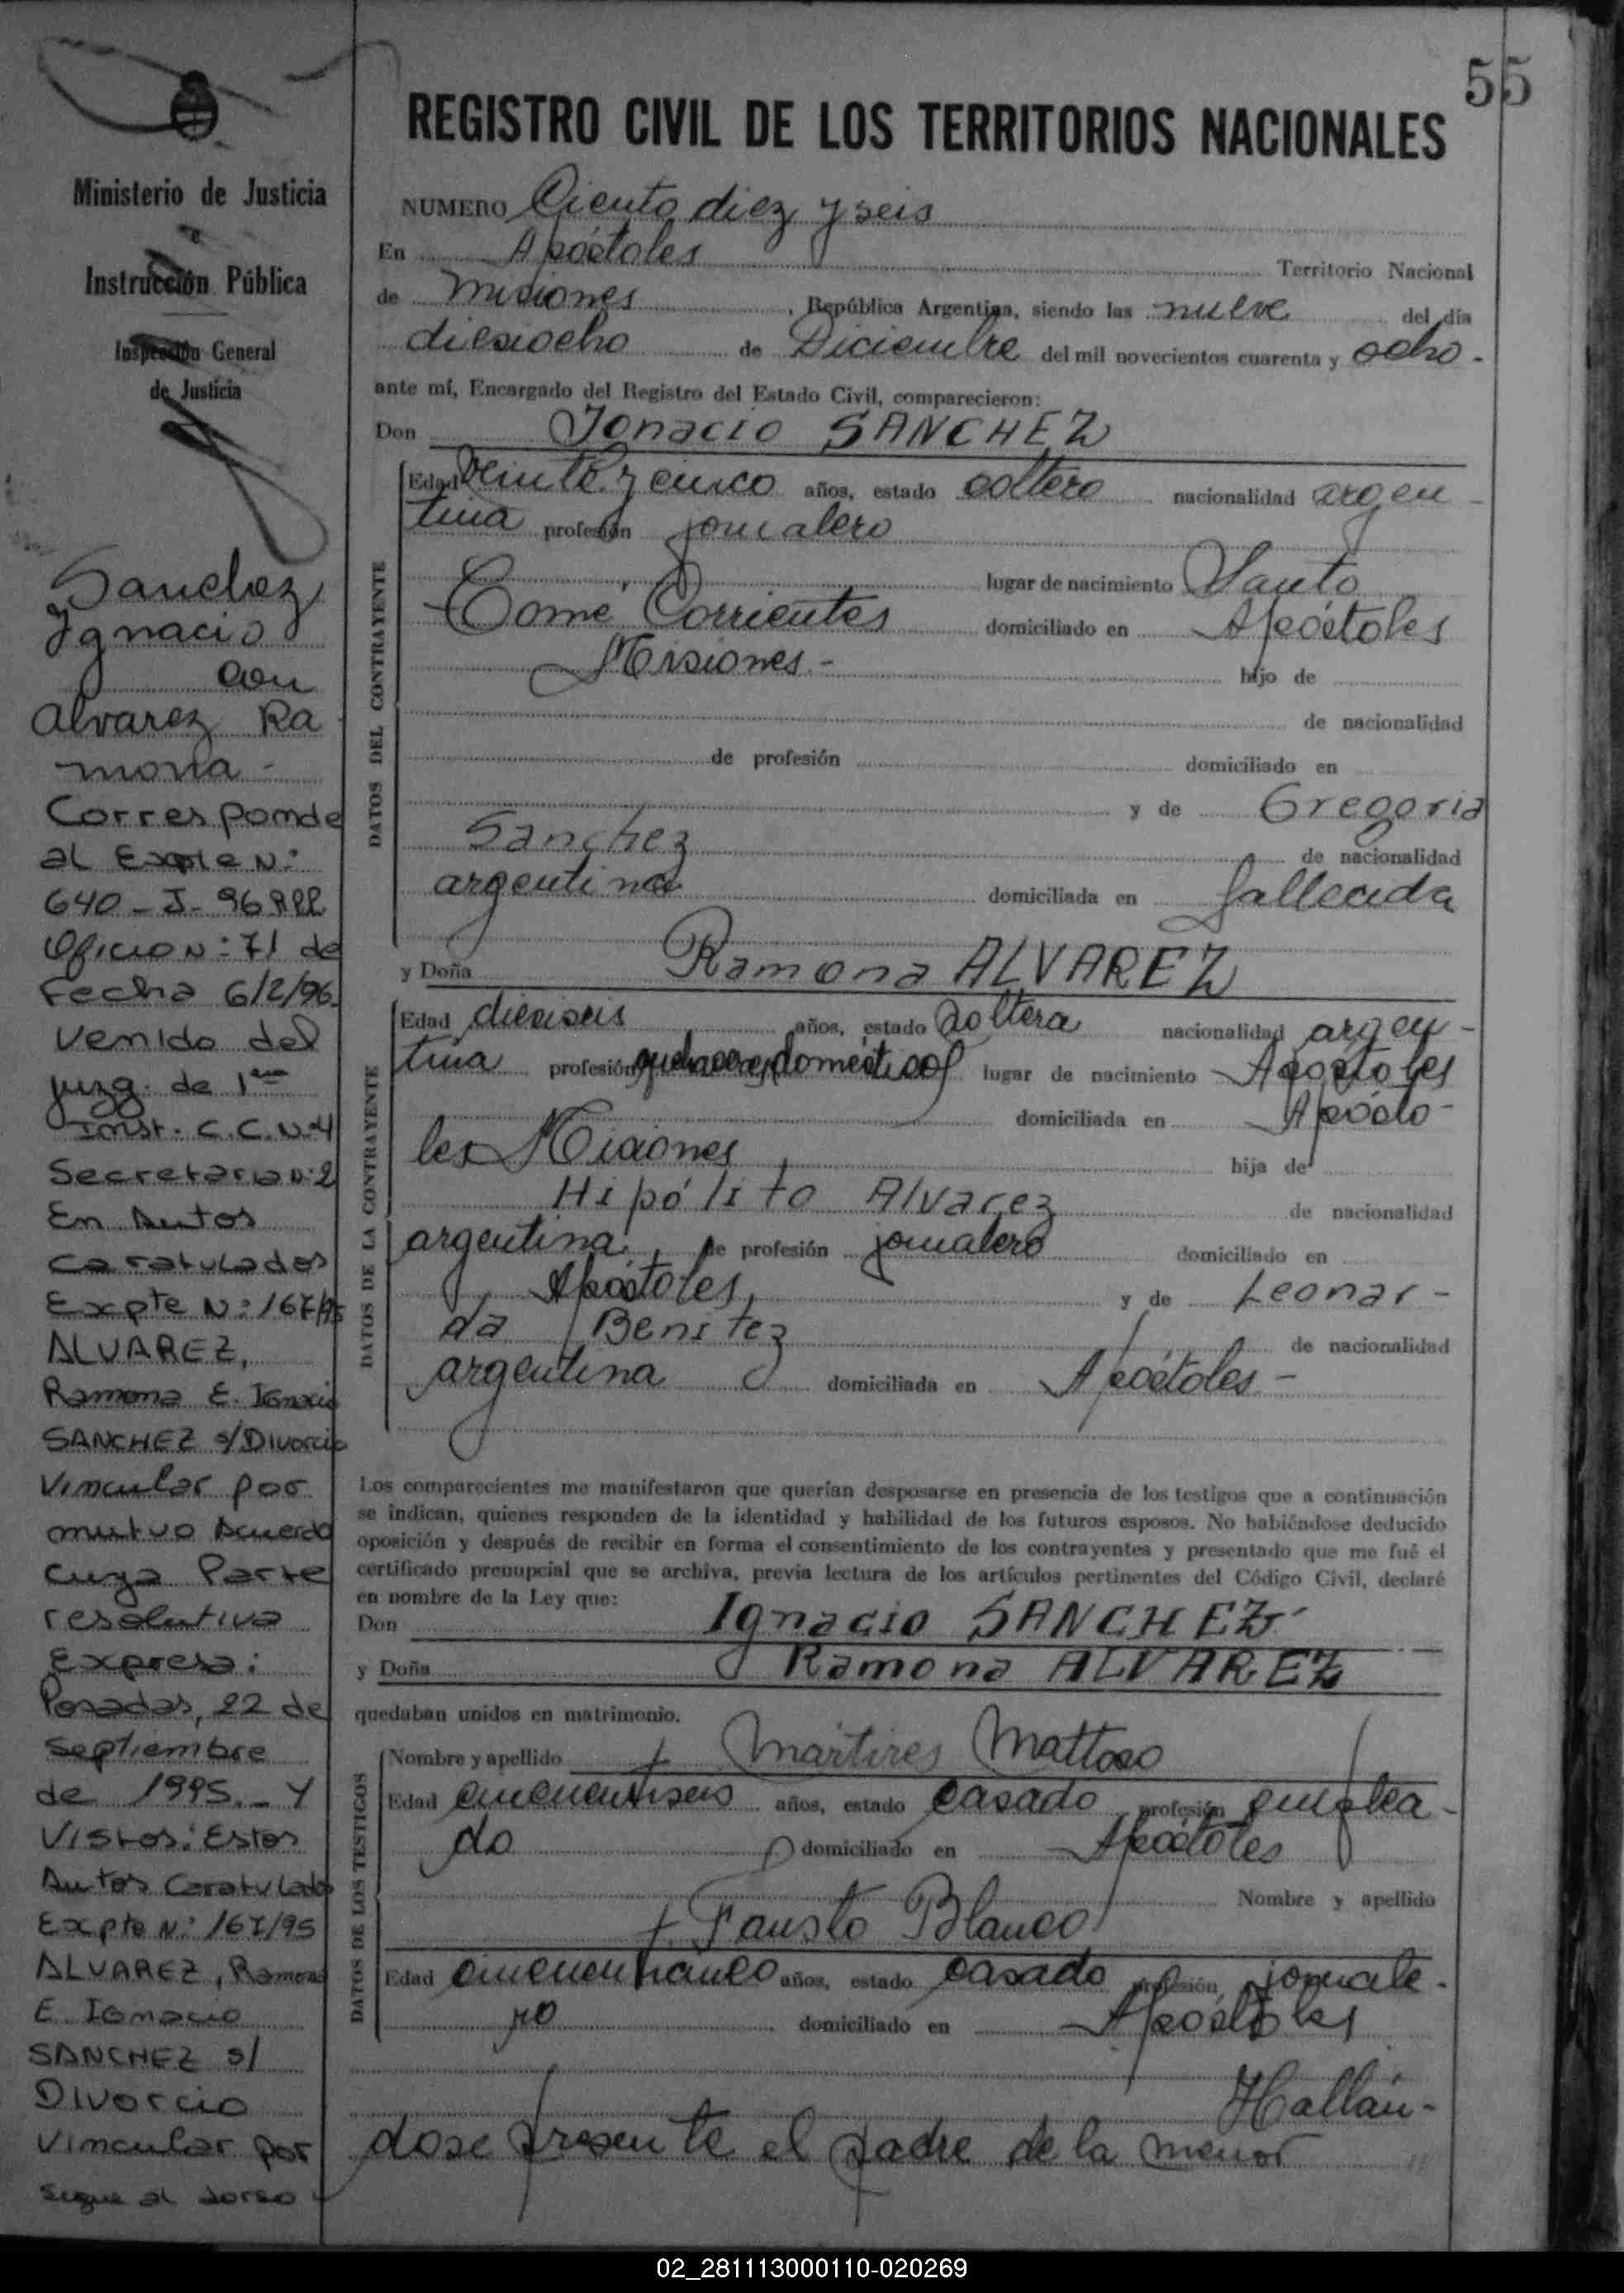 55
REGISTRO CIVIL DE LOS TERRITORIOS NACIONALES
Ministerio de Justicia
e
Instrucción Pública
Inspección General
de Justicia
NUMERO Ciento diez y seis
En Apóstoles Territorio Nacional
de Misiones, República Argentina, siendo las nueve del día
diesiocho de Diciembre del mil novecientos cuarenta y ocho.-
ante mí, Encargado del Registro del Estado Civil, comparecieron:
Don Ignacio SANCHEZ
DATOS DEL CONTRAYENTE
Edad Veinte y cinco años, estado soltero nacionalidad argen-
tina profesión jornalero
lugar de nacimiento Santo
Tomé Corrientes domiciliado en Apóstoles
Misiones.- hijo de
de nacionalidad
de profesión domiciliado en
y de Gregoria
Sanchez de nacionalidad
argentina domiciliada en fallecida
y Doña Ramona ALVAREZ
DATOS DE LA CONTRAYENTE
Edad diesiseis años, estado soltera nacionalidad argen-
tina profesión quehaceres domésticos lugar de nacimiento Apóstoles
domiciliada en Apósto-
les Misiones hija de
Hipólito Alvarez de nacionalidad
argentina, de profesión jornalero domiciliado en
Apóstoles, y de Leonar-
da Benitez de nacionalidad
argentina domiciliada en Apóstoles-
Los comparecientes me manifestaron que querían desposarse en presencia de los testigos que a continuación
se indican, quienes responden de la identidad y habilidad de los futuros esposos. No habiéndose deducido
oposición y después de recibir en forma el consentimiento de los contrayentes y presentado que me fué el
certificado prenupcial que se archiva, previa lectura de los artículos pertinentes del Código Civil, declaré
en nombre de la Ley que:
Don Ignacio SANCHEZ
y Doña Ramona ALVAREZ
quedaban unidos en matrimonio.
DATOS DE LOS TESTIGOS
Nombre y apellido Mártires Mattoso
Edad cincuentiseis años, estado casado profesión emplea-
do domiciliado en Apóstoles
Nombre y apellido
Fausto Blanco
Edad cincuenticinco años, estado casado profesión jornale-
ro domiciliado en Apóstoles
Hallán-
dose presente el padre de la menor
Sanchez
Ignacio
con
Alvarez Ra
mona-
Corresponde
al Expte N:
640-J-96
Oficio N: 71 de
Fecha 6/2/96.
Venido del
Juzg. de 1ra
Inst. C.C.N:4
Secretaria N:2
En Autos
Caratulados
Expte N: 167/95
ALVAREZ,
Ramona E. Ignacio
SANCHEZ s/Divorcio
Vincular por
mutuo Acuerdo
cuya Parte
resolutiva
Expresa:
Posadas, 22 de
Septiembre
de 1995.- Y
Vistos: Estos
Autos Caratulados
Expte N: 167/95
ALVAREZ, Ramona
E. Ignacio
SANCHEZ s/
Divorcio
Vincular por
Sigue al dorso
02_281113000110-020269